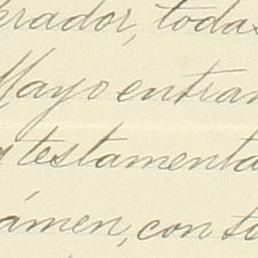 brador, todas
Mayo entran
testamenta
ámen, con to